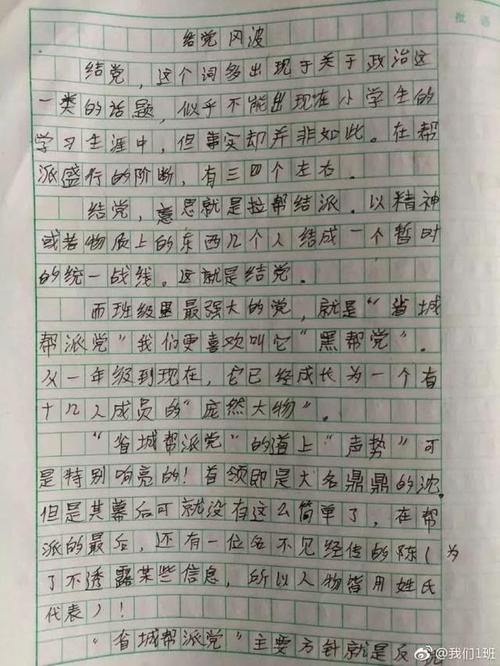 批语
结党风波
结党，这个词多出现于关于政治这
一类的话题，似乎不能出现在小学生的
学习生涯中，但事实却并非如此。在帮
派盛行的阶断，有三四个左右。
结党，意思就是拉帮结派。以精神
或者物质上的东西几个人结成一个暂时
的统一战线。这就是结党。
而班级里最强大的党，就是“省城
帮派党”我们更喜欢叫它“黑帮党”。
从一年级到现在，它已经成长为一个有
十几人成员的“庞然大物”。
“省城帮派党”的道上“声势”可
是特别响亮的！首领即是大名鼎鼎的沈。
但是其幕后可就没有这么简单了，在帮
派的最后，还有一位名不见经传的陈（为
了不透露某些信息，所以人物皆用姓氏
代表）！
“省城帮派党”主要方针就是反
@我们1班